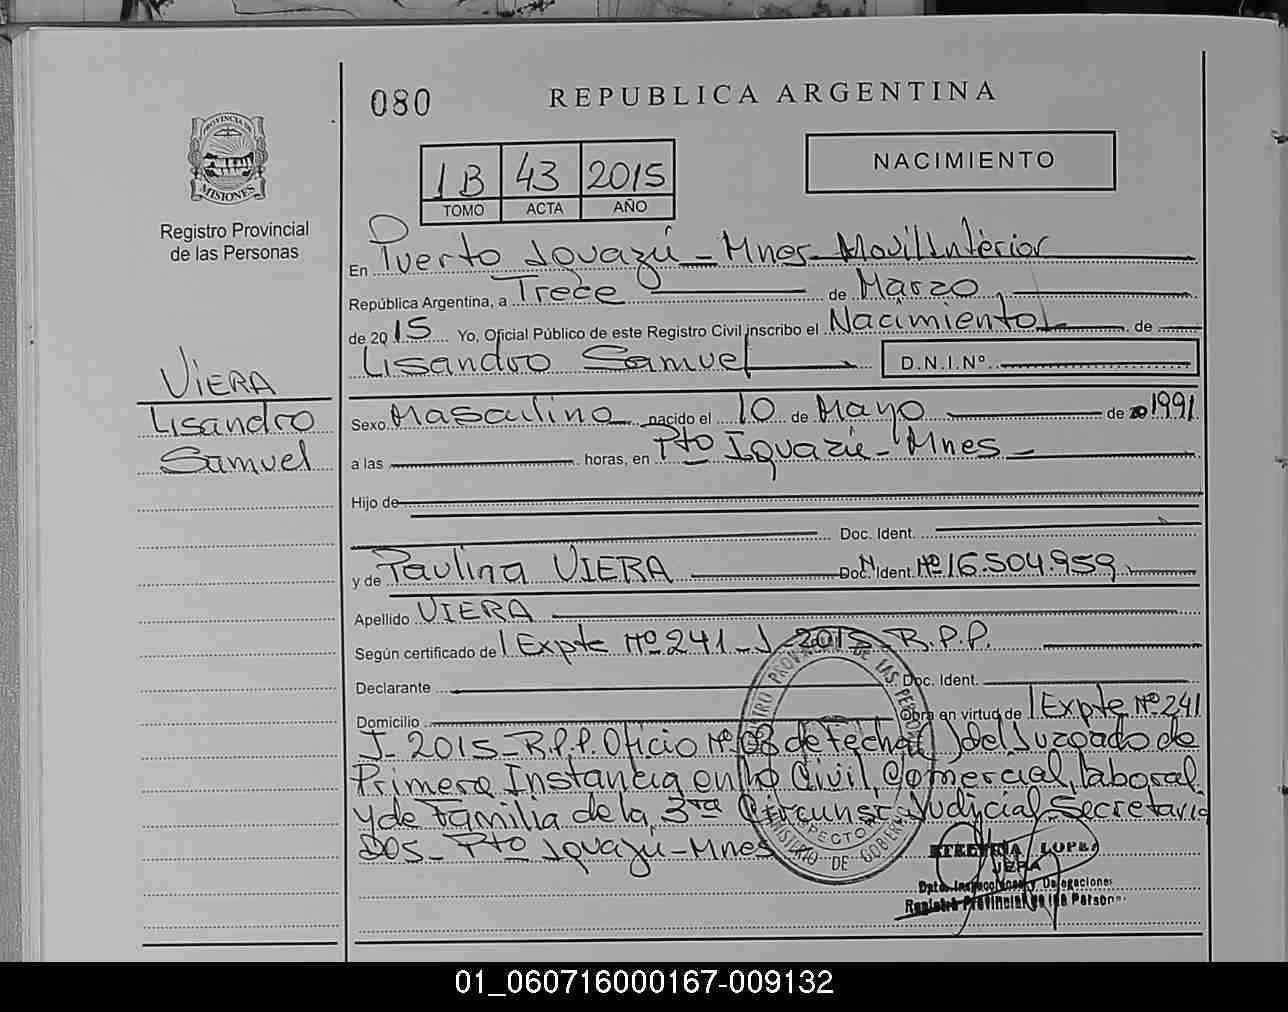 080
REPUBLICA ARGENTINA
PROVINCIA DE
MISIONES
Registro Provincial
de las Personas
1B 43 2015
TOMO ACTA AÑO
NACIMIENTO
En Puerto Iguazú - Mnes - Movil Interior
República Argentina, a Trece de Marzo
de 2015 Yo, Oficial Público de este Registro Civil inscribo el Nacimiento de
Lisandro Samuel D.N.I.Nº
VIERA
Lisandro
Samuel
Sexo Masculino nacido el 10 de Mayo de 1991
a las horas, en Pto Iguazú - Mnes -
Hijo de
Doc. Ident.
y de Paulina VIERA Doc. Ident. Nº 16.504.959
Apellido VIERA
Según certificado de Expte Nº 241 - J - 2015 - R.P.P.
Declarante Doc. Ident.
Domicilio Obra en virtud de Expte Nº 241
J - 2015 - R.P.P. Oficio Nº 08 de Fecha del Juzgado de
Primera Instancia en lo Civil, Comercial, laboral
y de Familia de la 3ra Circunsc. Judicial Secretaria
DOS - Pto Iguazu - Mnes
MINISTERIO DE GOBIERNO
LOPEZ
JEFA
Dpto. Inspecciones y Delegaciones
Registro Provincial de las Personas
01_060716000167-009132